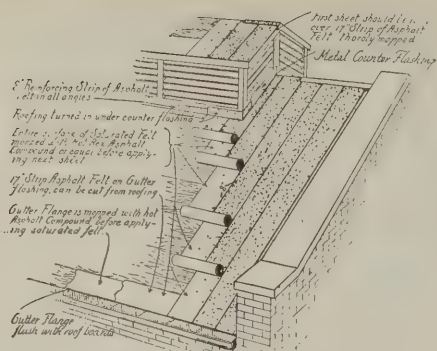 First sheet should be
over 17" Strip of Asphalt
Felt thoroly mopped
Metal Counter Flashing
8" Reinforcing Strip of Asphalt
Felt in all angles
Roofing turned in under counter flashing
Entire surface of Saturated Felt
mopped with hot Rex Asphalt
Compound or equal before apply-
ing next sheet
17" Strip Asphalt Felt on Gutter
flashing, can be cut from roofing
Gutter Flange is mopped with hot
Asphalt Compound before apply-
ing saturated felt.
Gutter Flange
flush with roof boards